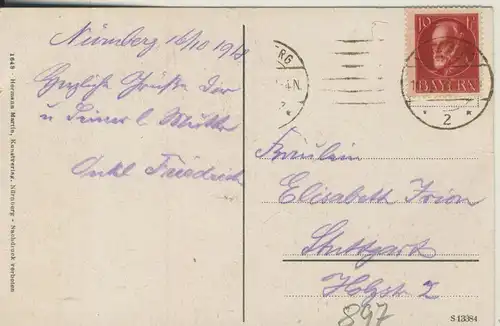 Nürnberg 16/10 1918
Herzliche Grüße Dir
u Deiner l. Mutter
Onkel Friedrich
1643 - Hermann Martin, Kunstverlag, Nürnberg - Nachdruck verboten
10 Pf
BAYERN
BERG
4-N.
2
* 2 *
Fräulein
Elisabeth Irion
Stuttgart
Holzstr 2
897
S 13384